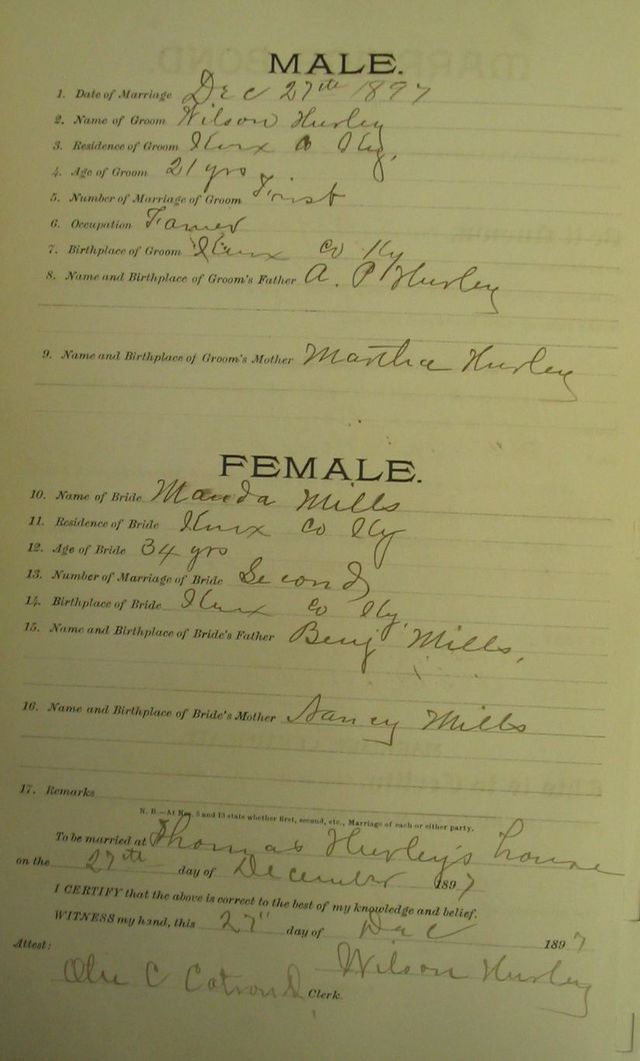 MALE.
1. Date of Marriage Dec 27th 1897
2. Name of Groom Wilson Hurley
3. Residence of Groom Knox Co Ky,
4. Age of Groom 21 yrs
5. Number of Marriage of Groom First
6. Occupation Farmer
7. Birthplace of Groom Knox Co Ky
8. Name and Birthplace of Groom's Father A. P Hurley
9. Name and Birthplace of Groom's Mother Martha Hurley
FEMALE.
10. Name of Bride Manda Mills
11. Residence of Bride Knox Co Ky
12. Age of Bride 34 yrs
13. Number of Marriage of Bride Second
14. Birthplace of Bride Knox Co Ky,
15. Name and Birthplace of Bride's Father Benj Mills,
16. Name and Birthplace of Bride's Mother Nancy Mills
17. Remarks
N. B.—At Nos. 5 and 13 state whether first, second, etc., Marriage of each or either party.
To be married at Thomas Hurley's house
on the 27th day of December 1897
I CERTIFY that the above is correct to the best of my knowledge and belief.
WITNESS my hand, this 27" day of Dec 1897
Attest: Wilson Hurley
C Catron Clerk.